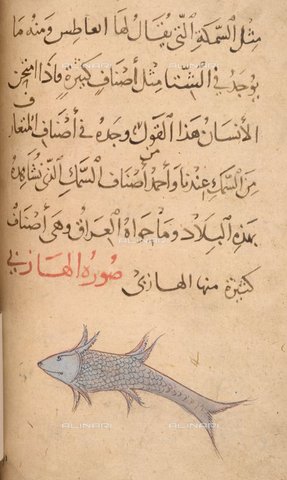 مثل السمكة التي يقال لها العاطس ومنه ما
يوجد في الشتا مثل أصناف كثيرة فاذا امتحن
الأنسان هذا القول وجده في أصناف
من السمك عندنا وأحمد أصناف السمك التي نشاهده
بهذه البلاد وما حواه العراق وهي أصناف
كثيرة منها الهازبى
صورة الهازبى
ALINARI
ALINARI
ALINARI
ALINARI